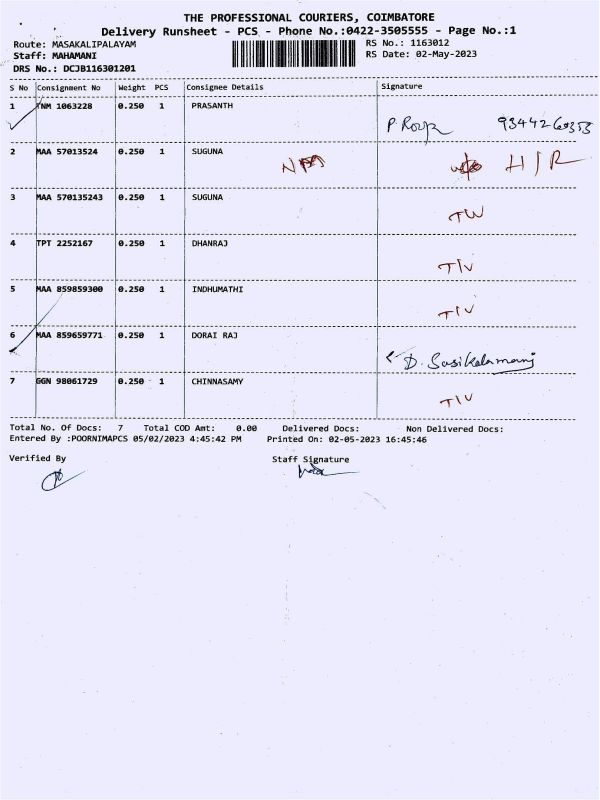 THE PROFESSIONAL COURIERS, COIMBATORE
Delivery Runsheet - PCS - Phone No.:0422-3505555 - Page No.:1
Route: MASAKALIPALAYAM
Staff: MAHAMANI
DRS No.: DCJB116301201
RS No.: 1163012
RS Date: 02-May-2023
S No Consignment No Weight PCS Consignee Details Signature
1 TNM 1063228 0.250 1 PRASANTH
2 MAA 57013524 0.250 1 SUGUNA H/R
3 MAA 570135243 0.250 1 SUGUNA
4 TPT 2252167 0.250 1 DHANRAJ
5 MAA 859859300 0.250 1 INDHUMATHI
6 MAA 859659771 0.250 1 DORAI RAJ D. Sasikalamani
7 GGN 98061729 0.250 1 CHINNASAMY
Total No. Of Docs: 7 Total COD Amt: 0.00 Delivered Docs: Non Delivered Docs:
Entered By :POORNIMAPCS 05/02/2023 4:45:42 PM Printed On: 02-05-2023 16:45:46
Verified By Staff Signature